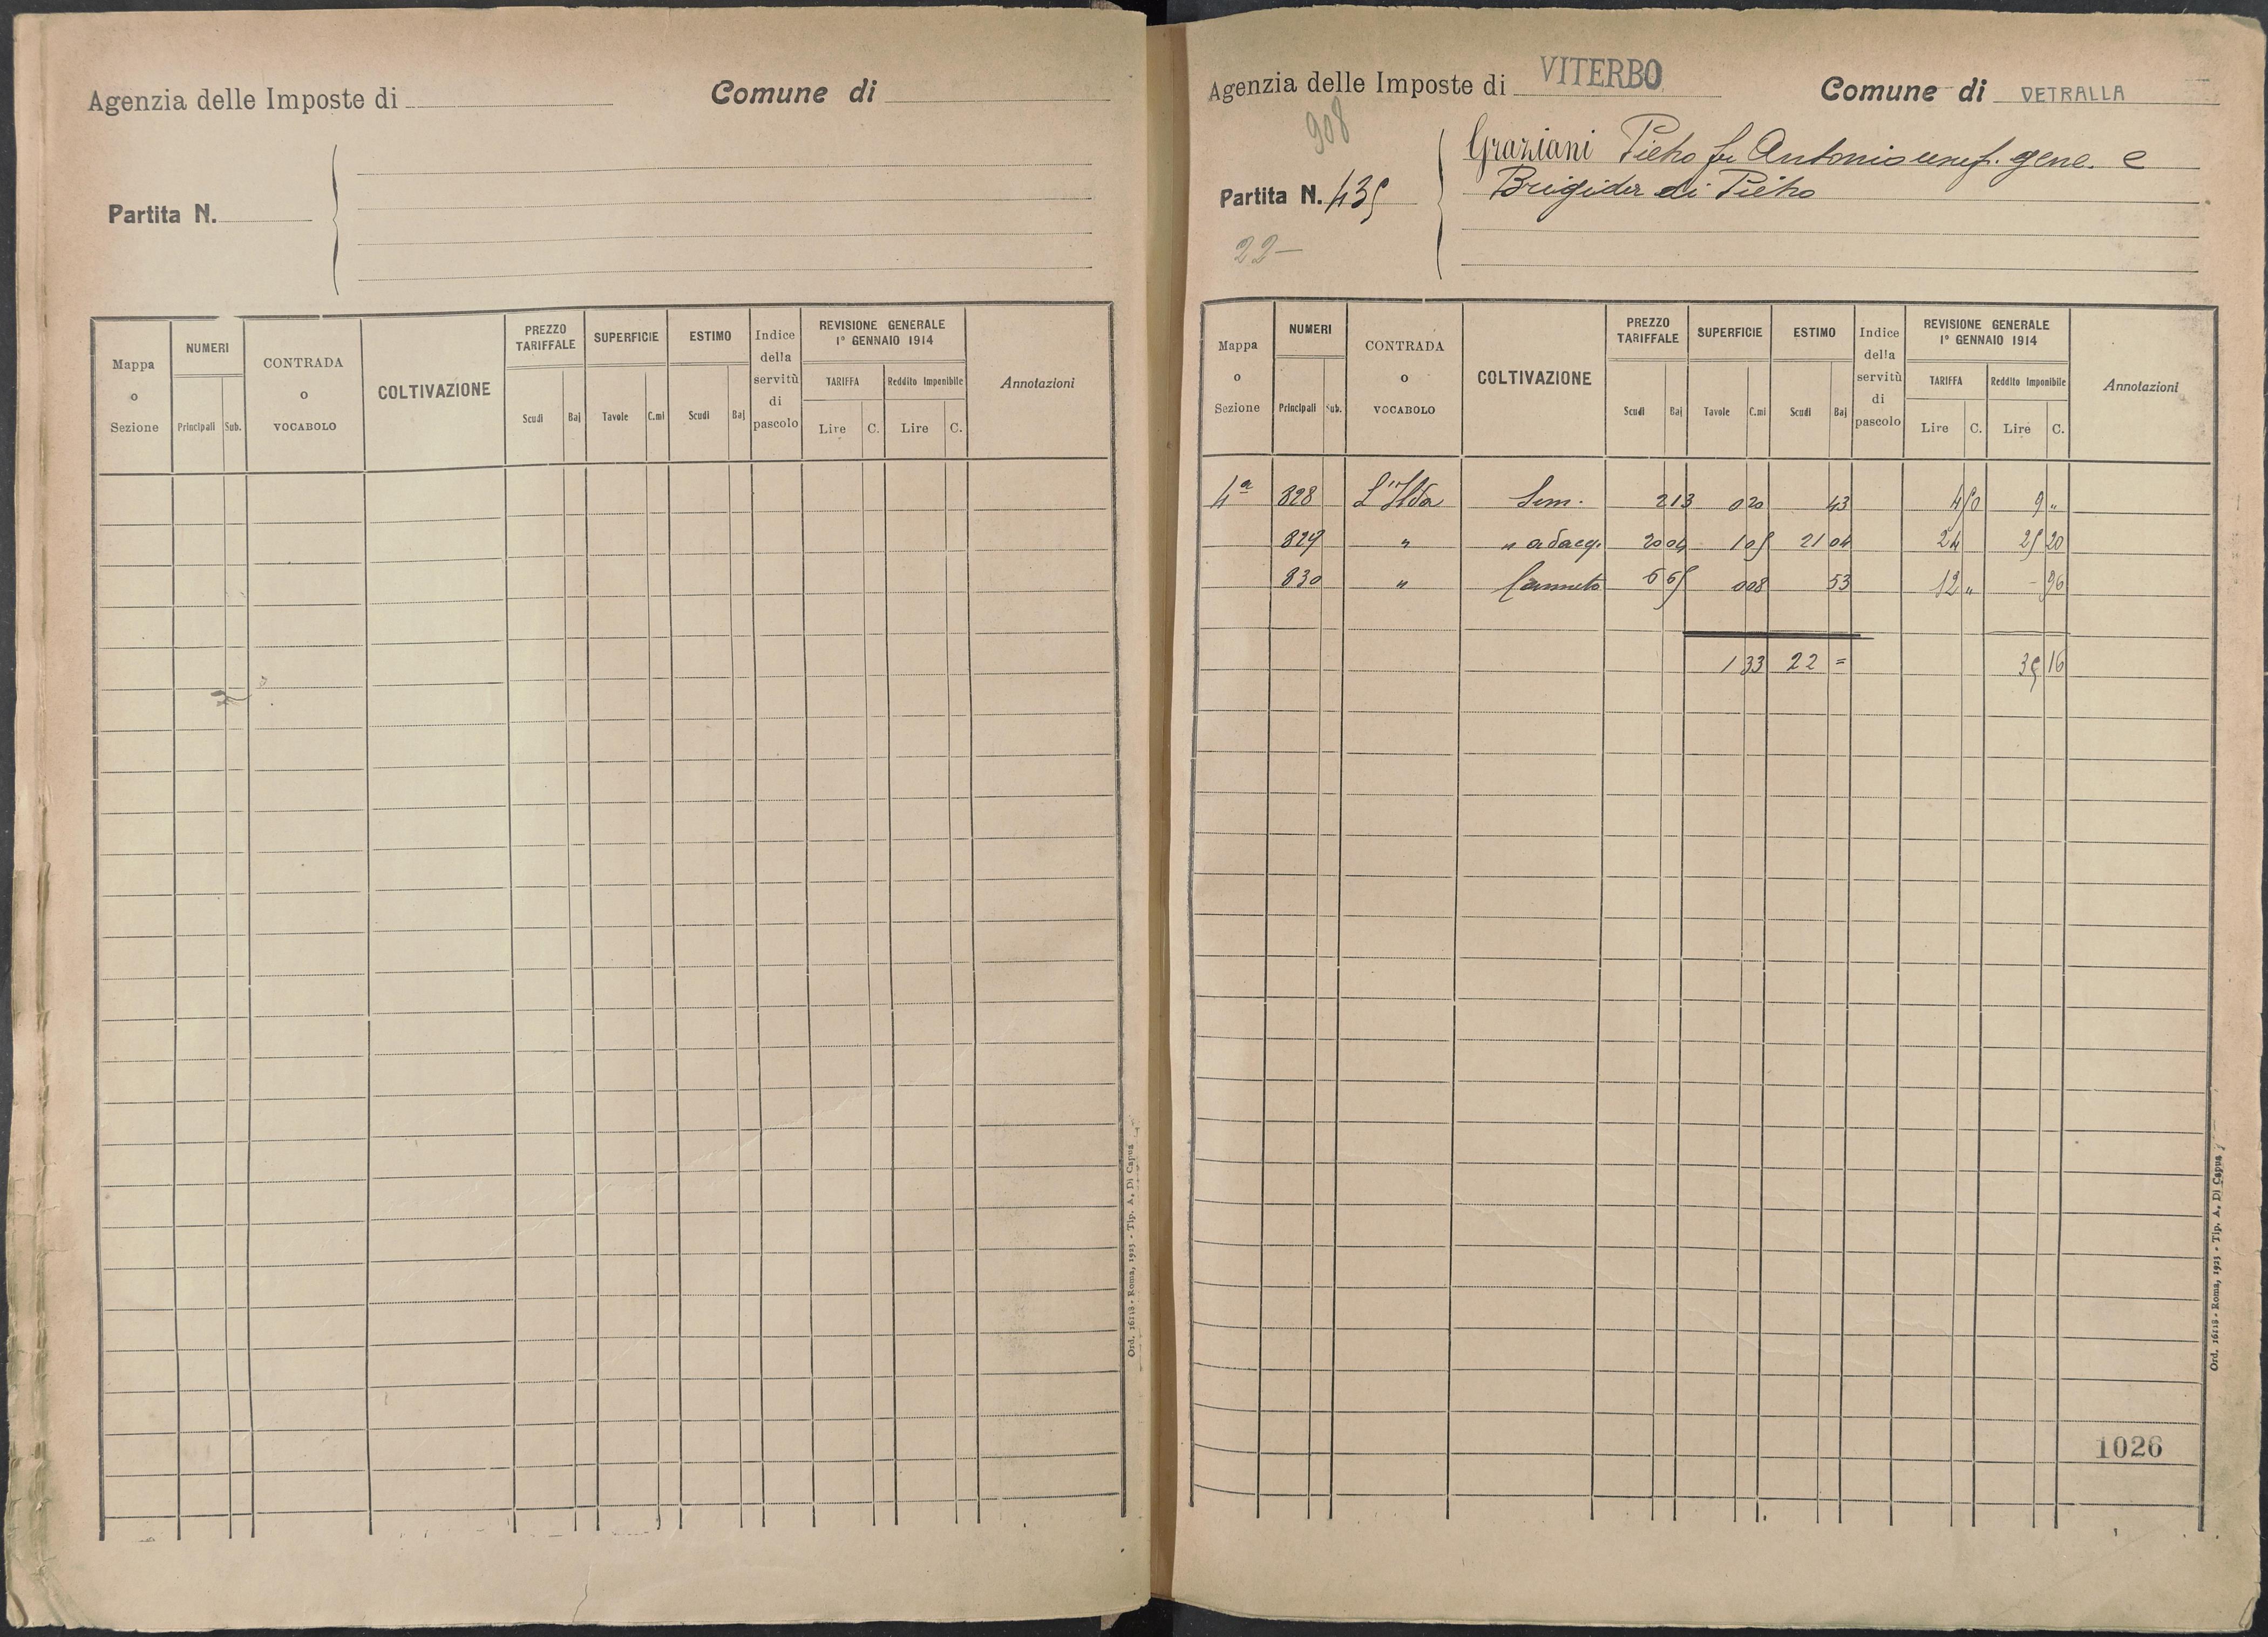 Agenzia delle Imposte di
Comune di
Partita N.
Mappa o Sezione
NUMERI
Principali Sub.
CONTRADA o VOCABOLO
COLTIVAZIONE
PREZZO TARIFFALE
Scudi Baj
SUPERFICIE
Tavole C.mi
ESTIMO
Scudi Baj
Indice della servitù di pascolo
REVISIONE GENERALE
1° GENNAIO 1914
TARIFFA
Lire C.
Reddito Imponibile
Lire C.
Annotazioni
Ord. 16118 - Roma, 1923 - Tip. A. Di Capua
Agenzia delle Imposte di VITERBO
Comune di VETRALLA
908
Graziani Pietro fu Antonio usuf. gene. e
Partita N. 435
Brigida di Pietro
22-
Mappa o Sezione
NUMERI
Principali Sub.
CONTRADA o VOCABOLO
COLTIVAZIONE
PREZZO TARIFFALE
Scudi Baj
SUPERFICIE
Tavole C.mi
ESTIMO
Scudi Baj
Indice della servitù di pascolo
REVISIONE GENERALE
1° GENNAIO 1914
TARIFFA
Lire C.
Reddito Imponibile
Lire C.
Annotazioni
4a 828 Sem. 2 13 0 20 43 4 50 9 "
829 " " adacq. 20 04 1 05 21 04 24 25 20
830 " Canneto 6 65 0 08 53 12 " - 96
1 33 22 = 35 16
1026
Ord. 16118 - Roma, 1923 - Tip. A. Di Capua